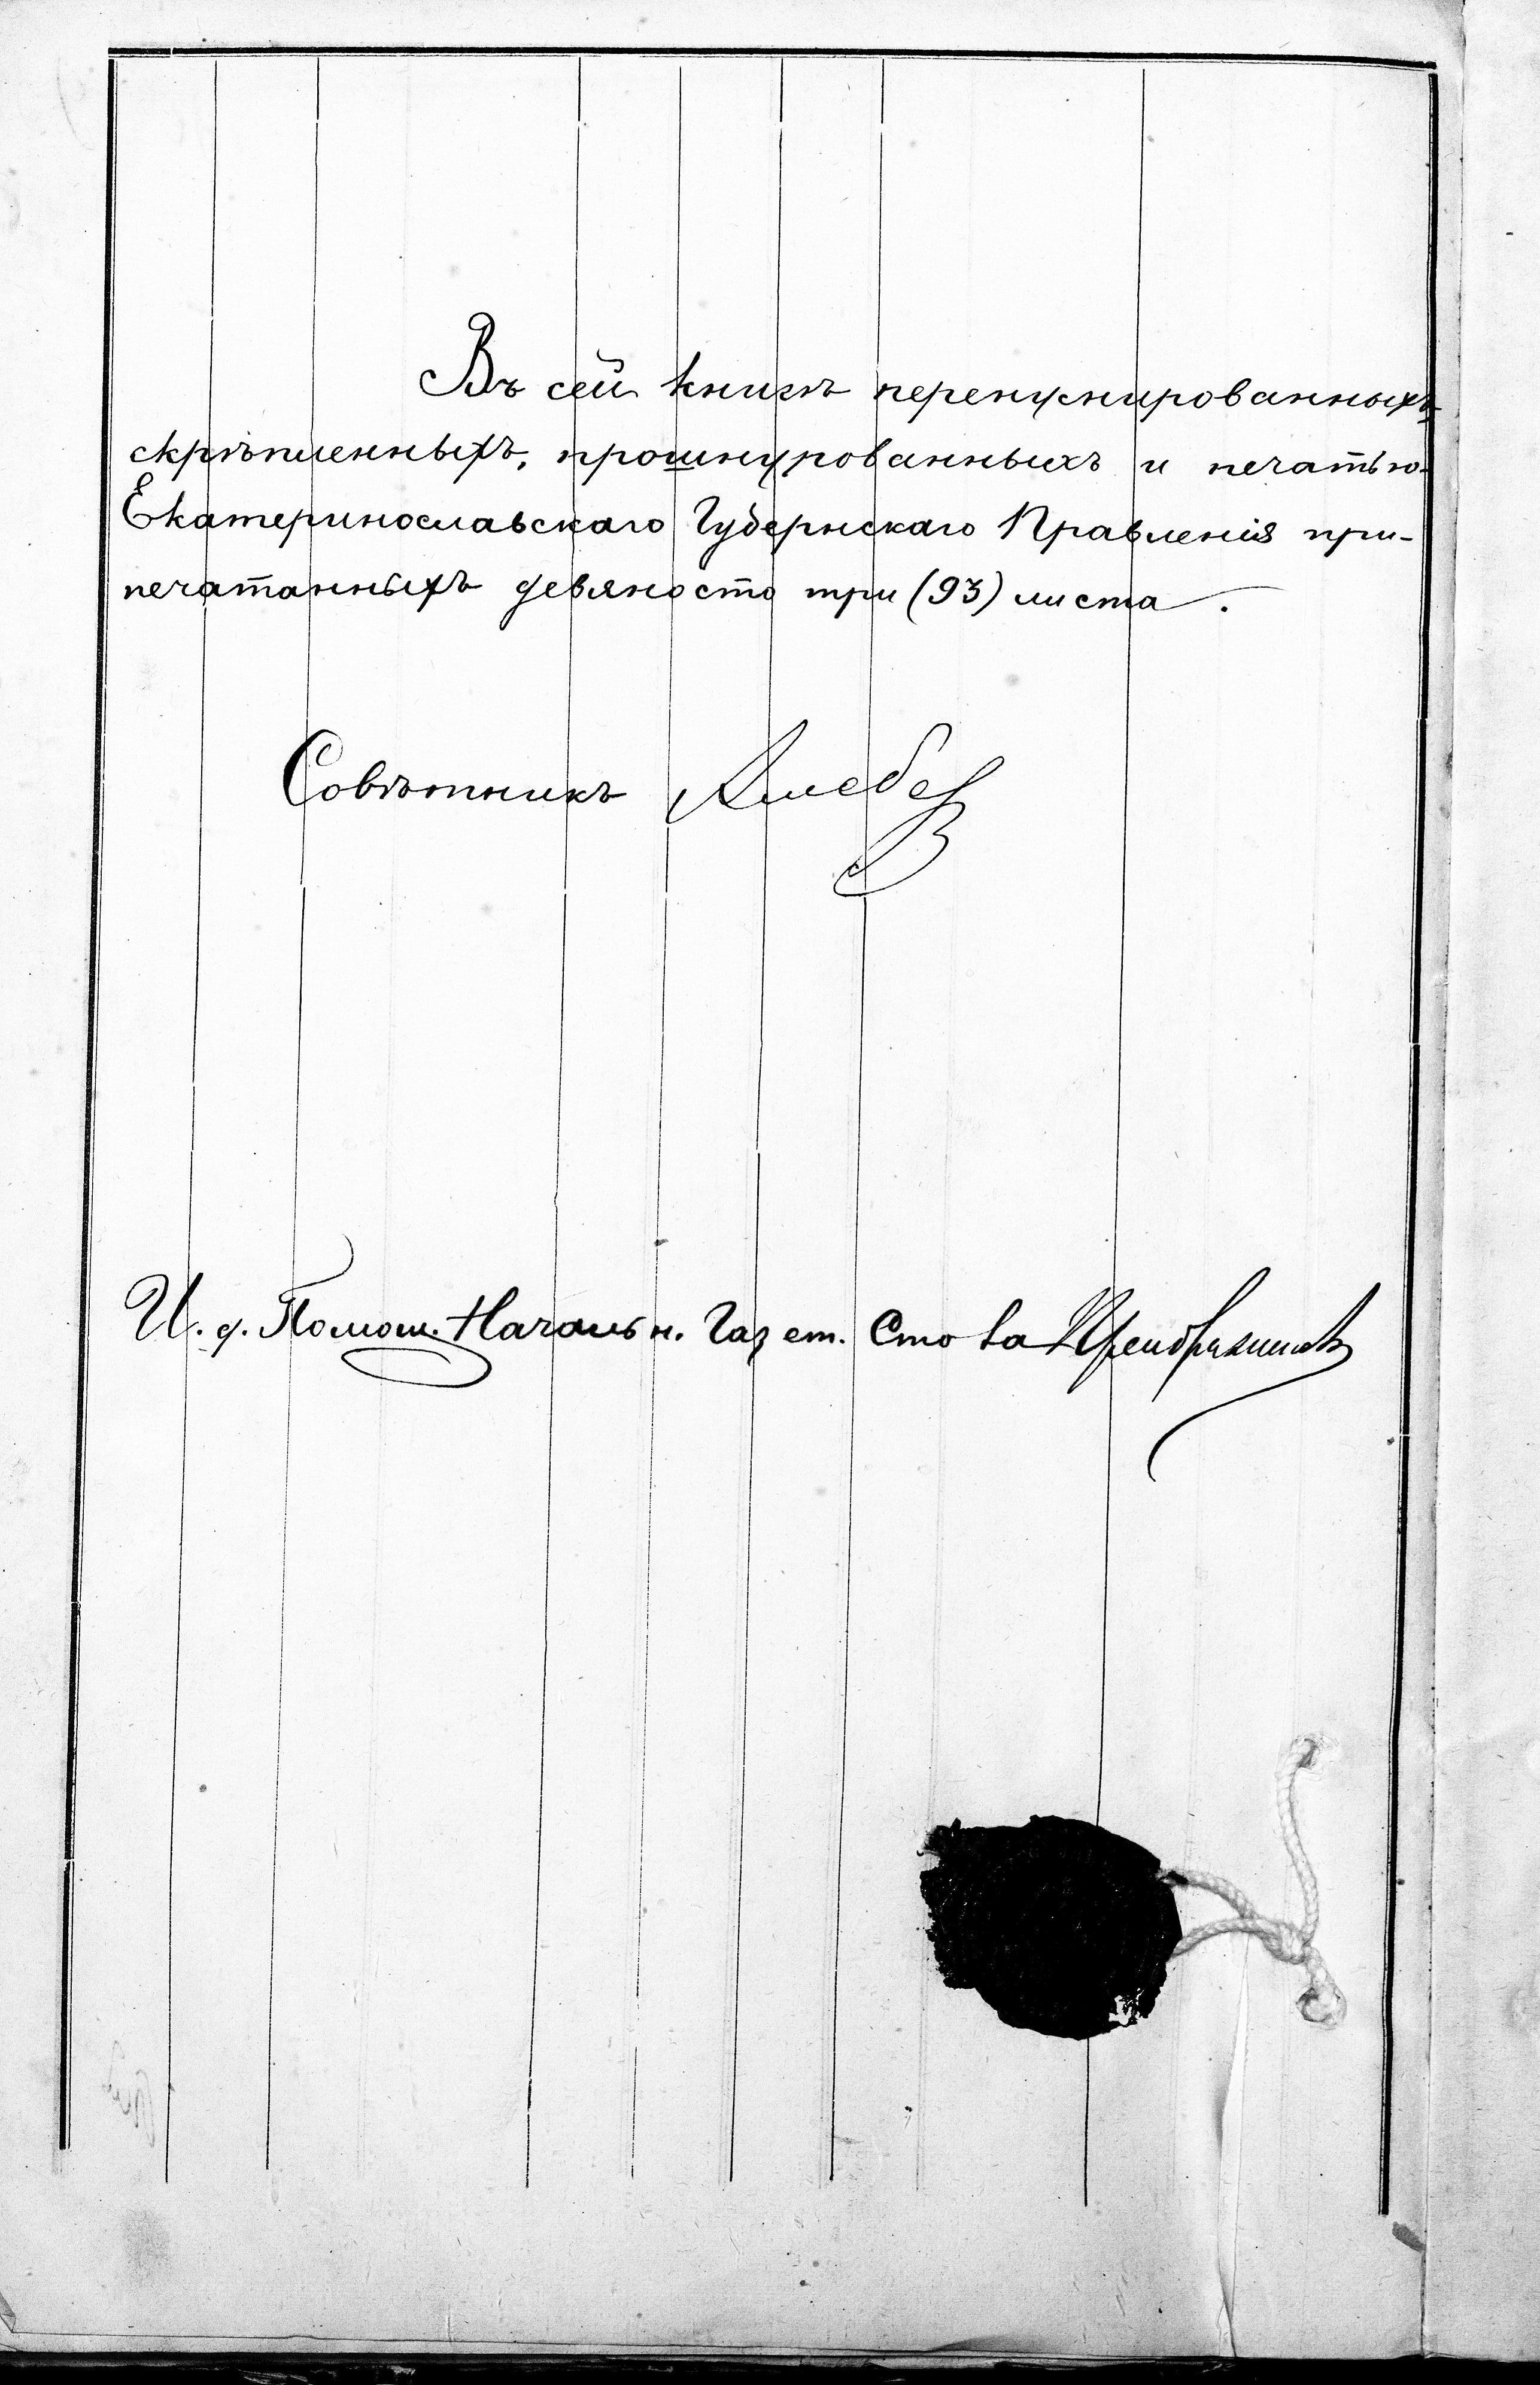 Въ сей книгѣ перенумерованныхъ,
скрѣпленныхъ, прошнурованныхъ и печатью
Екатеринославскаго Губернскаго Правленія при-
печатанныхъ девяносто три (93) листа.
Совѣтникъ
И. д. Помощ. Начальн. Газет. Сто ла